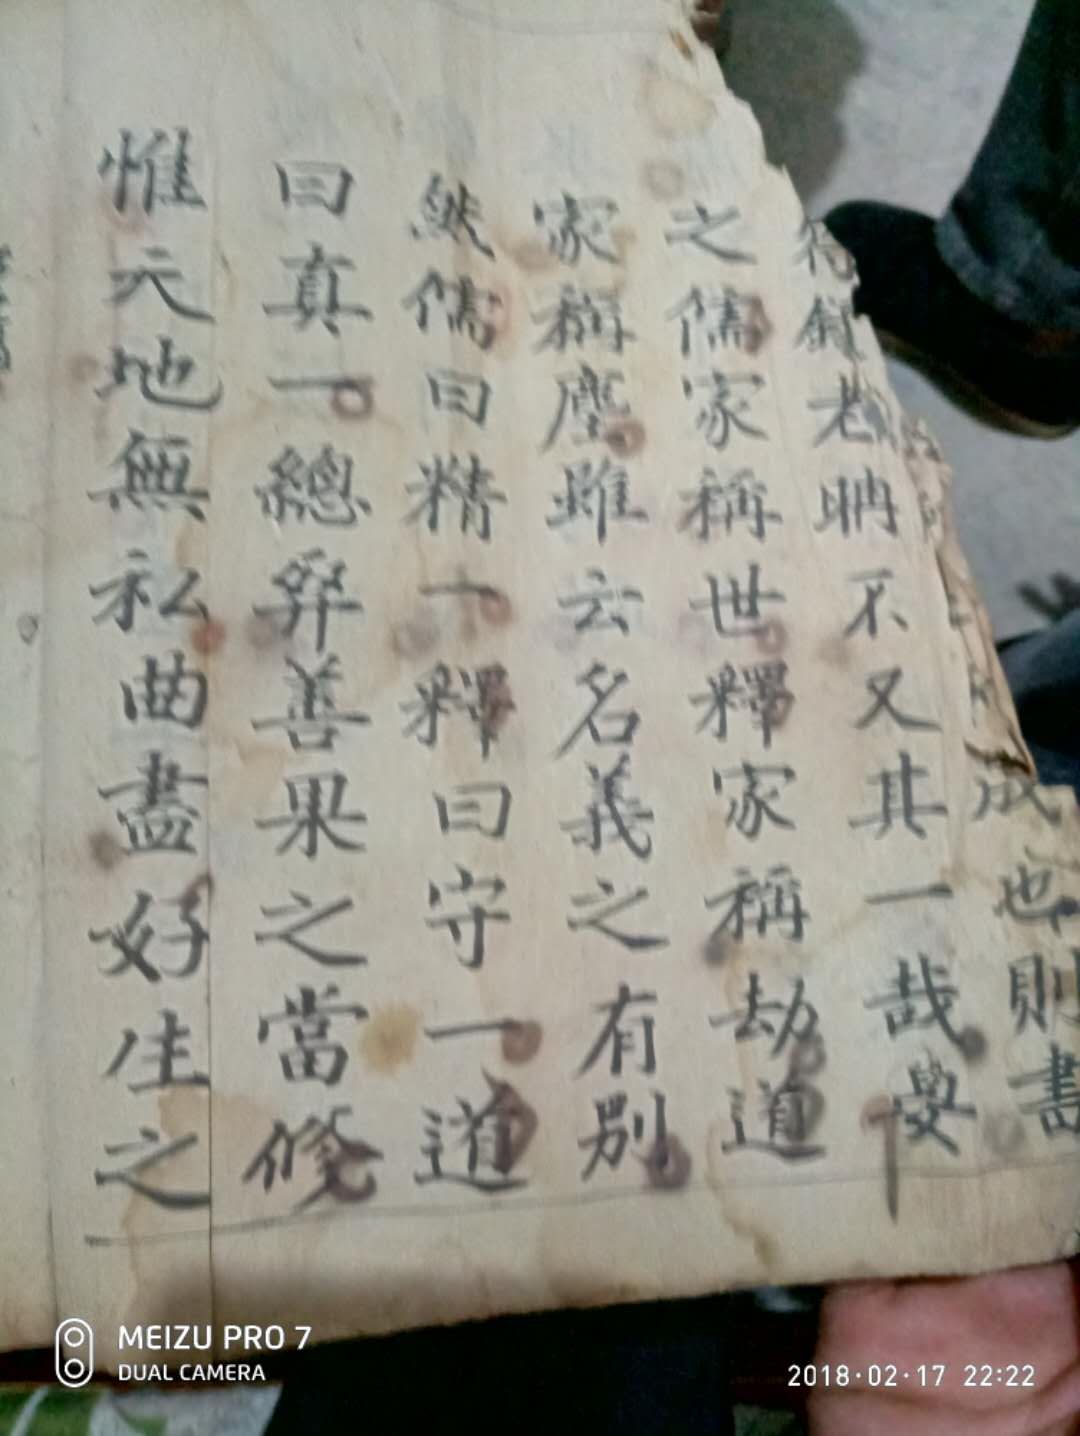 成也則書
老聃不又其一哉
之儒家稱世釋家稱劫道
家稱塵雖云名義之有别
然儒曰精一釋曰守一道
曰真一總彛善果之當修
惟天地無私曲盡好生之
MEIZU PRO 7
DUAL CAMERA
2018·02·17 22:22